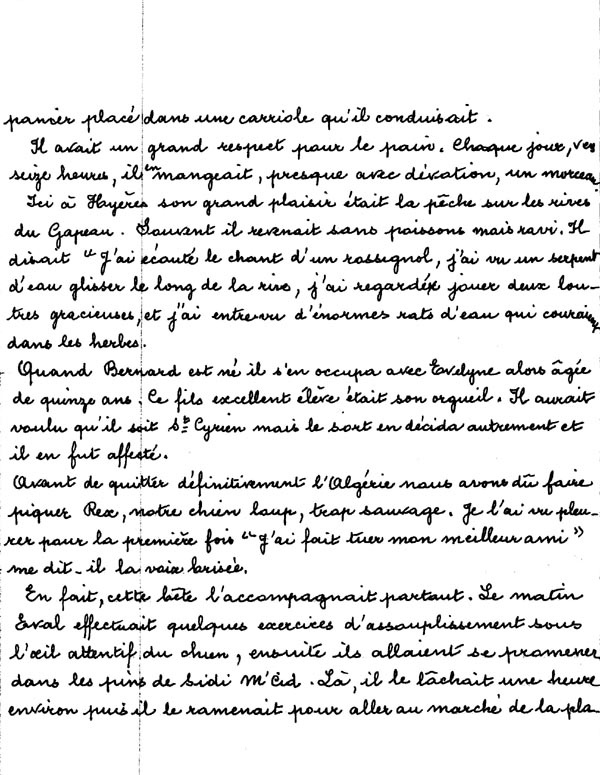 panier placé dans une carriole qu'il conduisait.
Il avait un grand respect pour le pain. Chaque jour, vers
seize heures, il en mangeait, presque avec dévotion, un morceau.
Ici à Hyères son grand plaisir était la pêche sur les rives
du Gapeau. Souvent il revenait sans poissons mais ravi. Il
disait "J'ai écouté le chant d'un rossignol, j'ai vu un serpent
d'eau glisser le long de la rive, j'ai regardé jouer deux lou-
tres gracieuses, et j'ai entrevu d'énormes rats d'eau qui couraient
dans les herbes.
Quand Bernard est né il s'en occupa avec Evelyne alors âgée
de quinze ans. Ce fils excellent élève était son orgueil. Il aurait
voulu qu'il soit St Cyrien mais le sort en décida autrement et
il en fut affecté.
Avant de quitter définitivement l'Algérie nous avons dû faire
piquer Rex, notre chien loup, trop sauvage. Je l'ai vu pleu-
rer pour la première fois "J'ai fait tuer mon meilleur ami"
me dit-il la voix brisée.
En fait, cette bête l'accompagnait partout. Le matin
Eval effectuait quelques exercices d'assouplissement sous
l'œil attentif du chien, ensuite ils allaient se promener
dans les pins de Sidi M'Cid. Là, il le lâchait une heure
environ puis il le ramenait pour aller au marché de la pla-